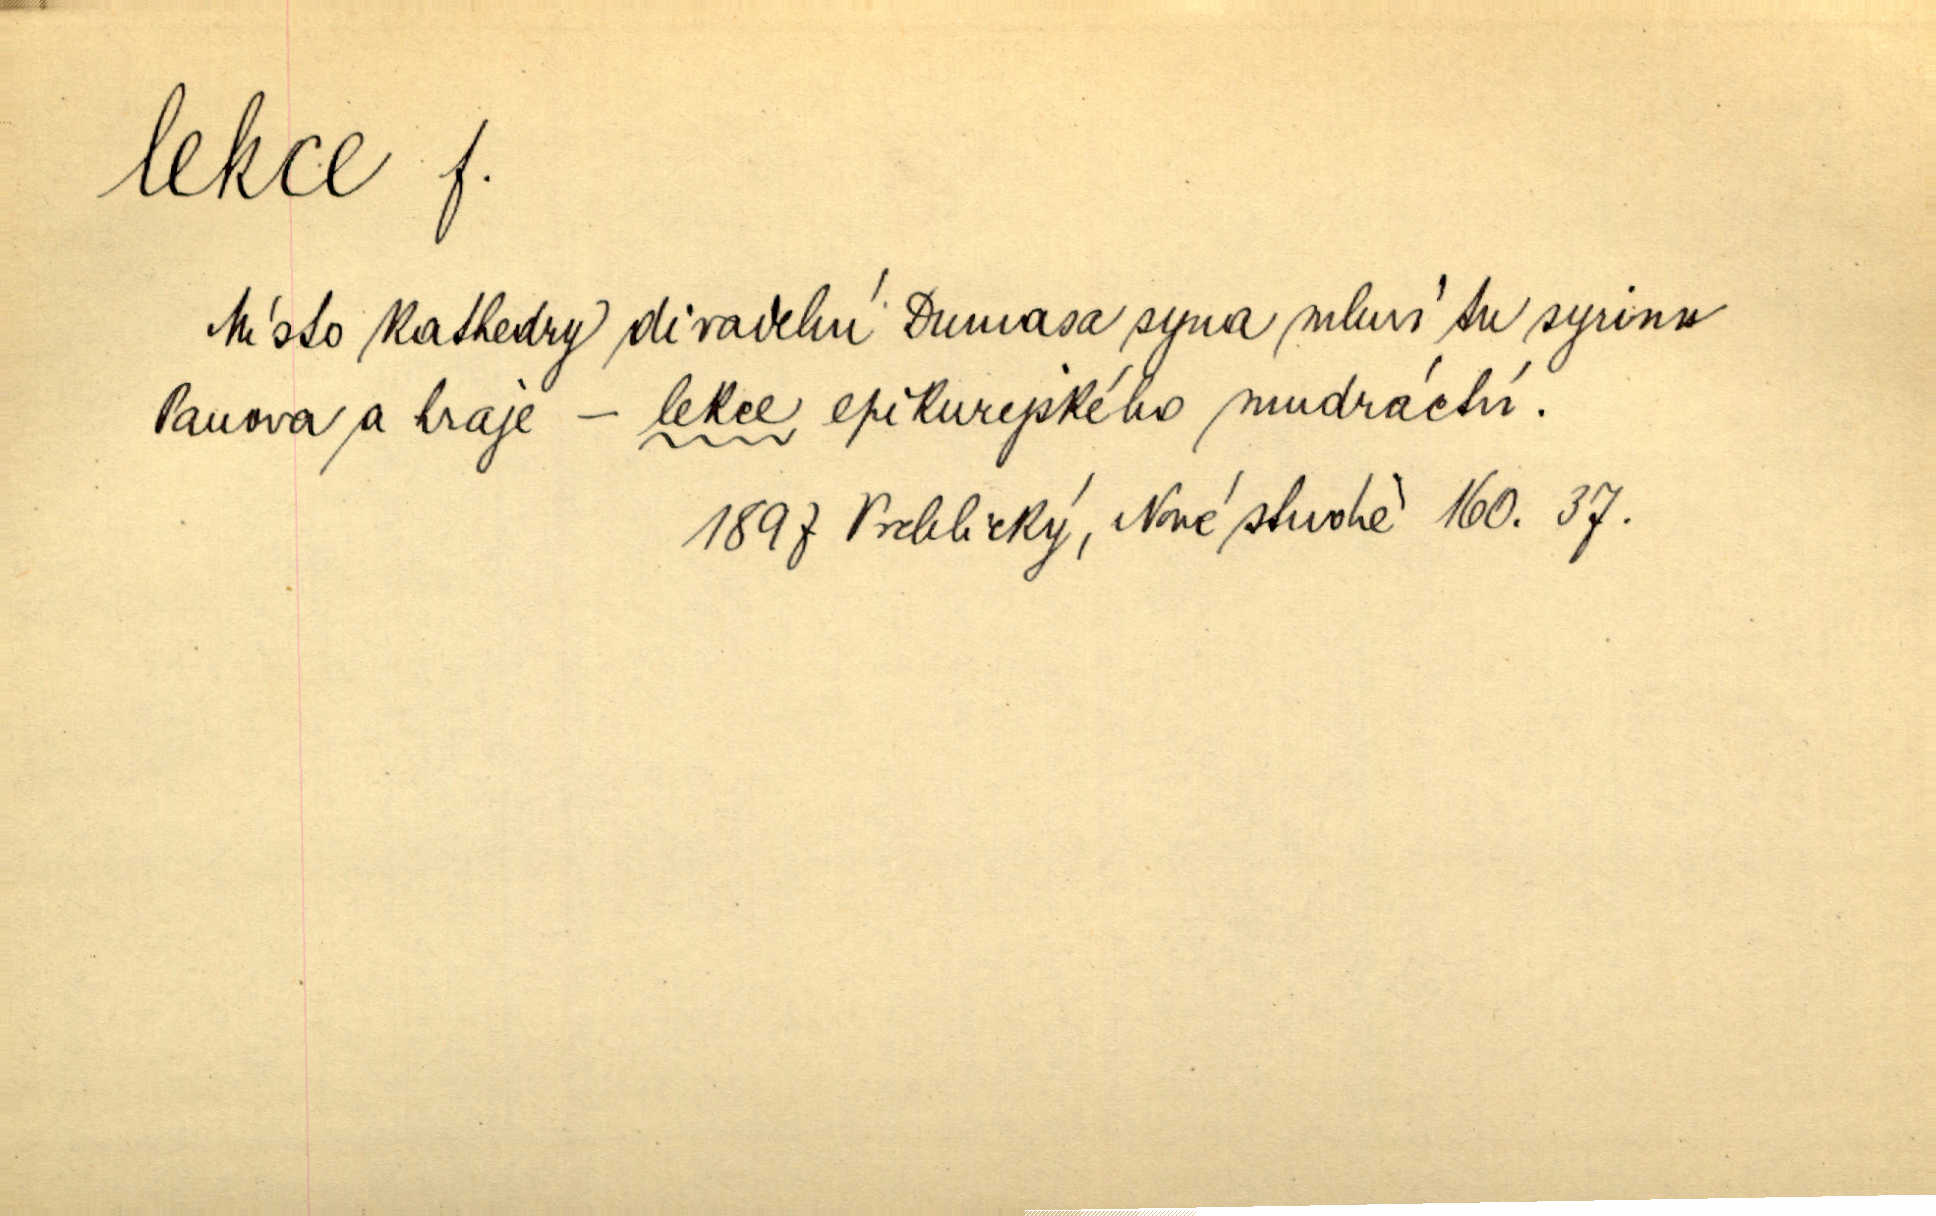 lekce f.
Místo kathedry divadelní Dumasa syna mluví tu syrinx
Panova a hraje – lekce epikurejského mudráctví.
1897 Vrchlický, Nové studie 160. 37.